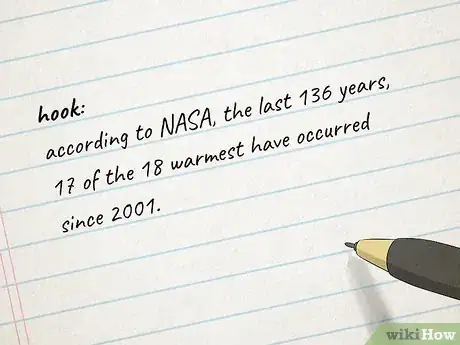 hook:
according to NASA, the last 136 years,
17 of the 18 warmest have occurred
since 2001.
wikiHow